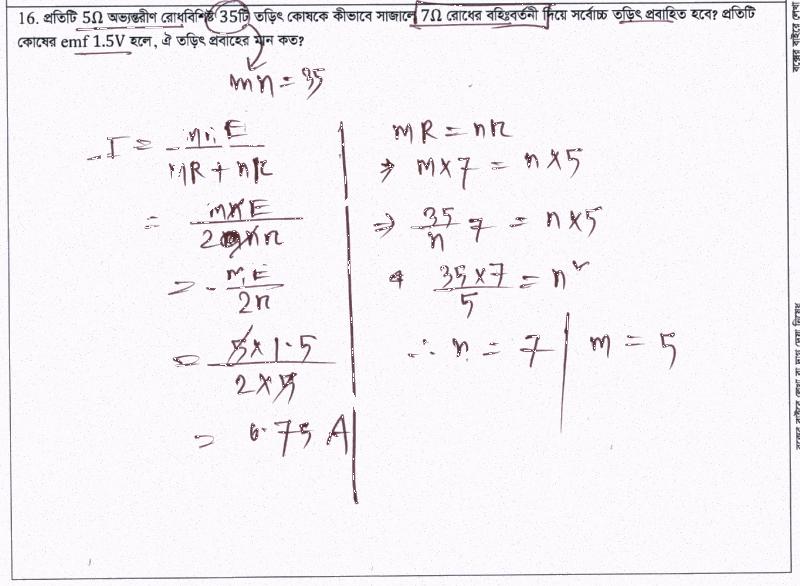 16. প্রতিটি 5Ω অভ্যন্তরীণ রোধবিশিষ্ট 35টি তড়িৎ কোষকে কীভাবে সাজালে 7Ω রোধের বহিঃবর্তনী দিয়ে সর্বোচ্চ তড়িৎ প্রবাহিত হবে? প্রতিটি
কোষের emf 1.5V হলে, ঐ তড়িৎ প্রবাহের মান কত?
mn = 35
I = mnE / mR + nr
= mnE / 2nr
= mE / 2r
= 5 × 1.5 / 2 × 5
= 0.75 A
mR = nr
⇒ m × 7 = n × 5
⇒ 35/n 7 = n × 5
35 × 7 / 5 = n²
∴ n = 7 | m = 5